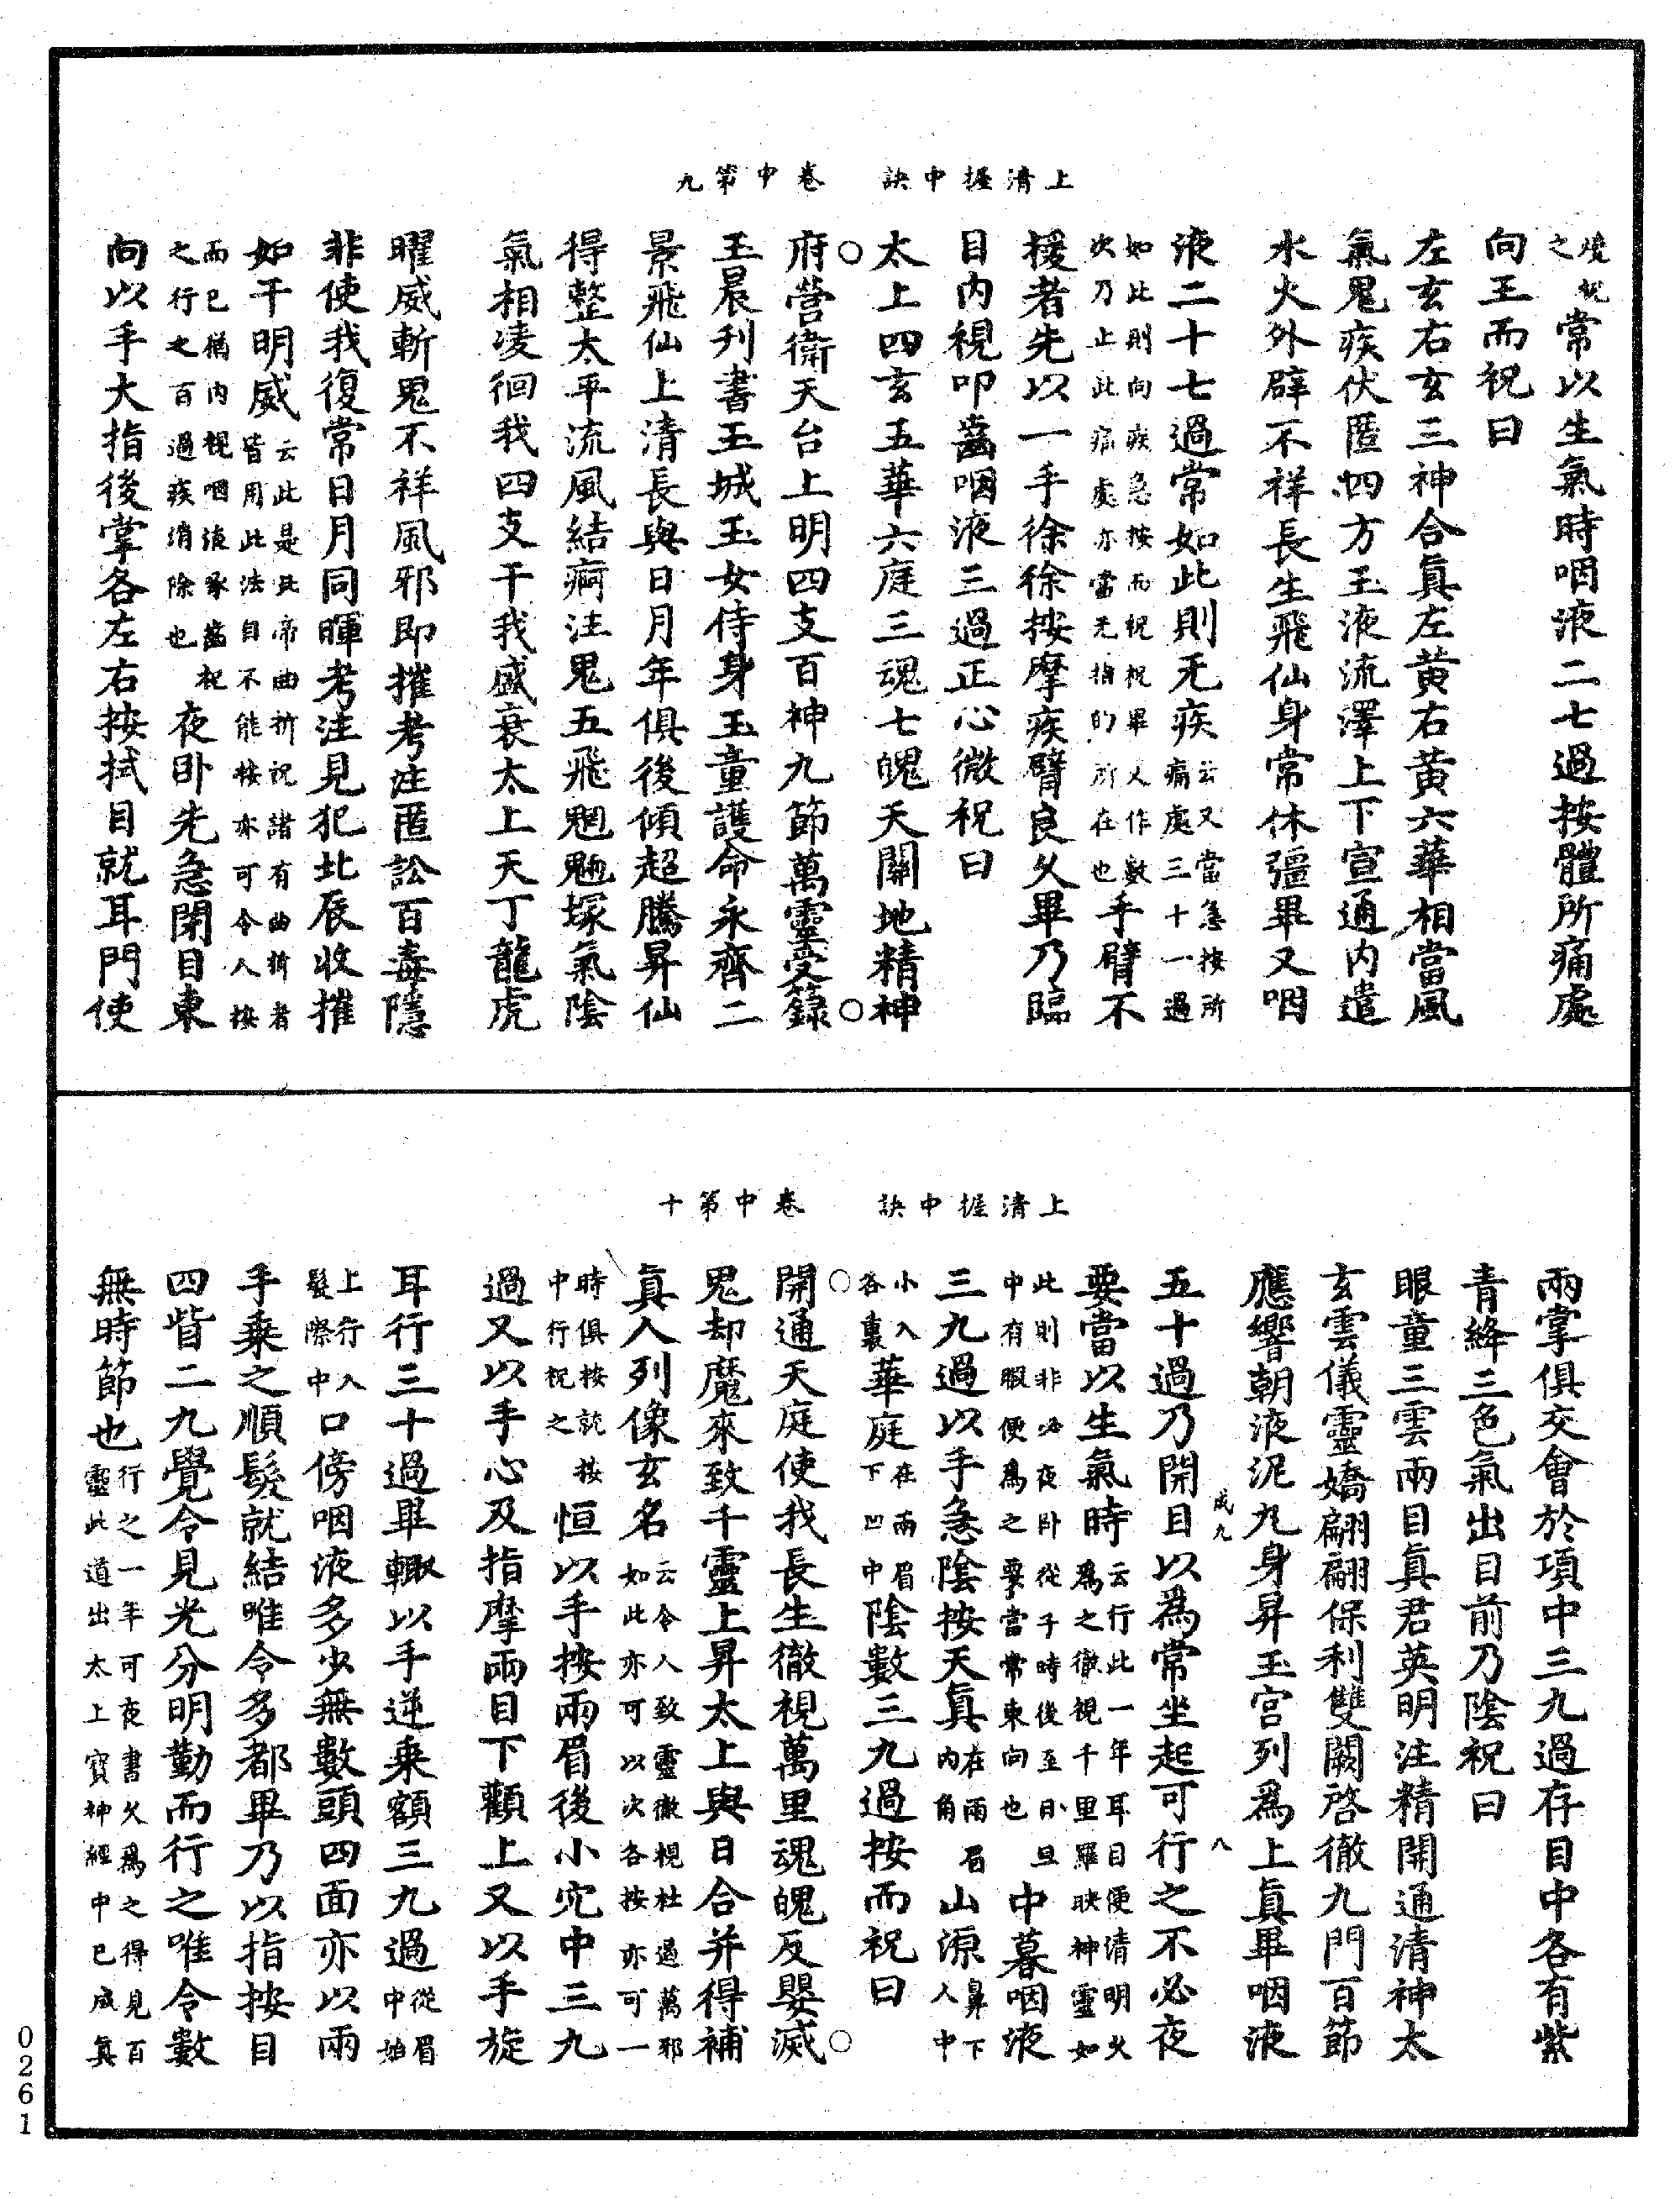 上清握中訣　卷中第九
燒祝之常以生氣時咽液二七過按體所痛處
向王而祝曰
左玄右玄三神合真左黃右黃六華相當風
氣鬼疾伏匿四方玉液流澤上下宣通內遣
水火外辟不祥長生飛仙身常休彊畢又咽
液二十七過常如此則无疾云又當急按所痛處三十一過
如此則向疾急按而祝祝畢又作數次乃止此痛處亦當无指的所在也手臂不
援者先以一手徐徐按摩疾臂良久畢乃臨
目內視叩齒咽液三過正心微祝曰
太上四玄五華六庭三魂七魄天關地精神
府營衛天台上明四支百神九節萬靈受籙
玉晨刋書玉城玉女侍身玉童護命永齊二
景飛仙上清長與日月年俱後傾超騰昇仙
得整太平流風結痾注鬼五飛魍魎塚氣陰
氣相凌徊我四支干我盛衰太上天丁龍虎
曜威斬鬼不祥風邪即摧考注匿訟百毒隱
非使我復常日月同暉考注見犯北辰收摧
如干明威云此是此帝曲折祝諸有曲折者皆用此法自不能按亦可令人按
而已猶內視咽液琢齒祝之行之百過疾消除也夜臥先急閉目東
向以手大指後掌各左右按拭目就耳門使
上清握中訣　卷中第十
兩掌俱交會於項中三九過存目中各有紫
青絳三色氣出目前乃陰祝曰
眼童三雲兩目真君英明注精開通清神太
玄雲儀靈嬌翩翩保利雙闕啓徹九門百節
應響朝液泥丸身昇玉宮列為上真畢咽液
成九　八
五十過乃開目以為常坐起可行之不必夜
要當以生氣時云行此一年耳目便清明久為之徹視千里羅映神靈如
此則非必夜臥從子時後至日旦中有暇便為之要當常東向也中暮咽液
三九過以手急陰按天真在兩眉內角山源鼻下人中
小入谷裏華庭在兩眉下凹中陰數三九過按而祝曰
開通天庭使我長生徹視萬里魂魄反嬰滅
鬼却魔來致千靈上昇太上與日合并得補
真人列像玄名云令人致靈徹視杜過萬邪如此亦可以次各按亦可一
時俱按就按中行祝之恒以手按兩眉後小穴中三九
過又以手心及指摩兩目下顴上又以手旋
耳行三十過畢輒以手逆乘額三九過從眉中始
上行入髮際中口傍咽液多少無數頭四面亦以兩
手乘之順髮就結唯令多都畢乃以指按目
四眥二九覺令見光分明勤而行之唯令數
無時節也行之一年可夜書久為之得見百靈此道出太上寶神經中已成真
0261